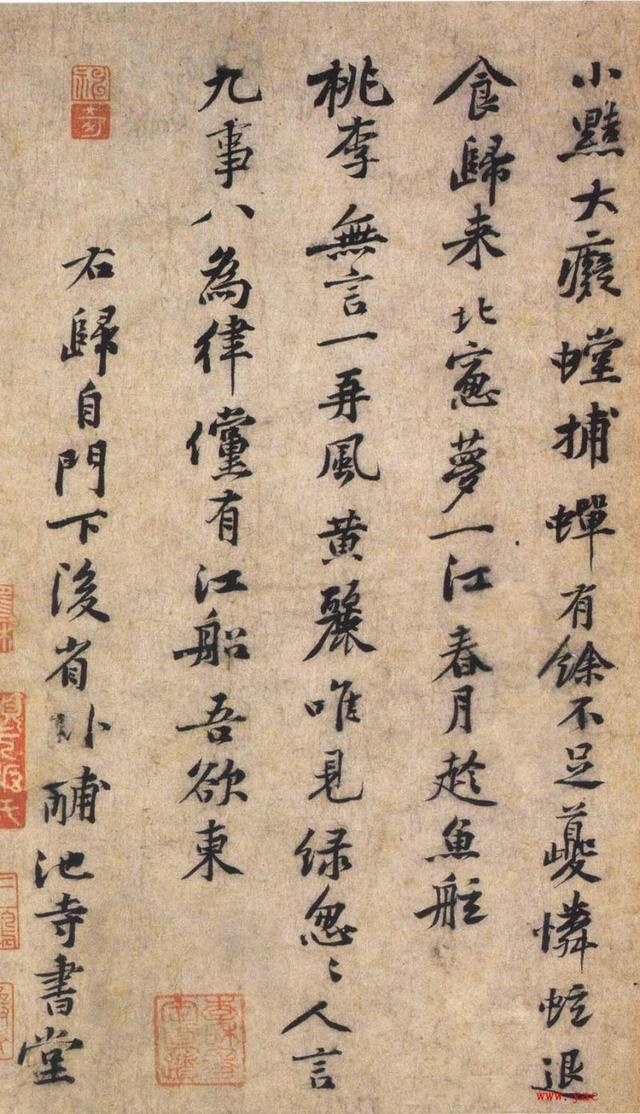 小黠大癡螳捕蟬有餘不足夔憐蚿退
食歸来北窻夢一江春月趁魚舡
桃李無言一再風黄麗唯見緑怱〻人言
九事八為律儻有江船吾欲東
右歸自門下後省卧酺池寺書堂